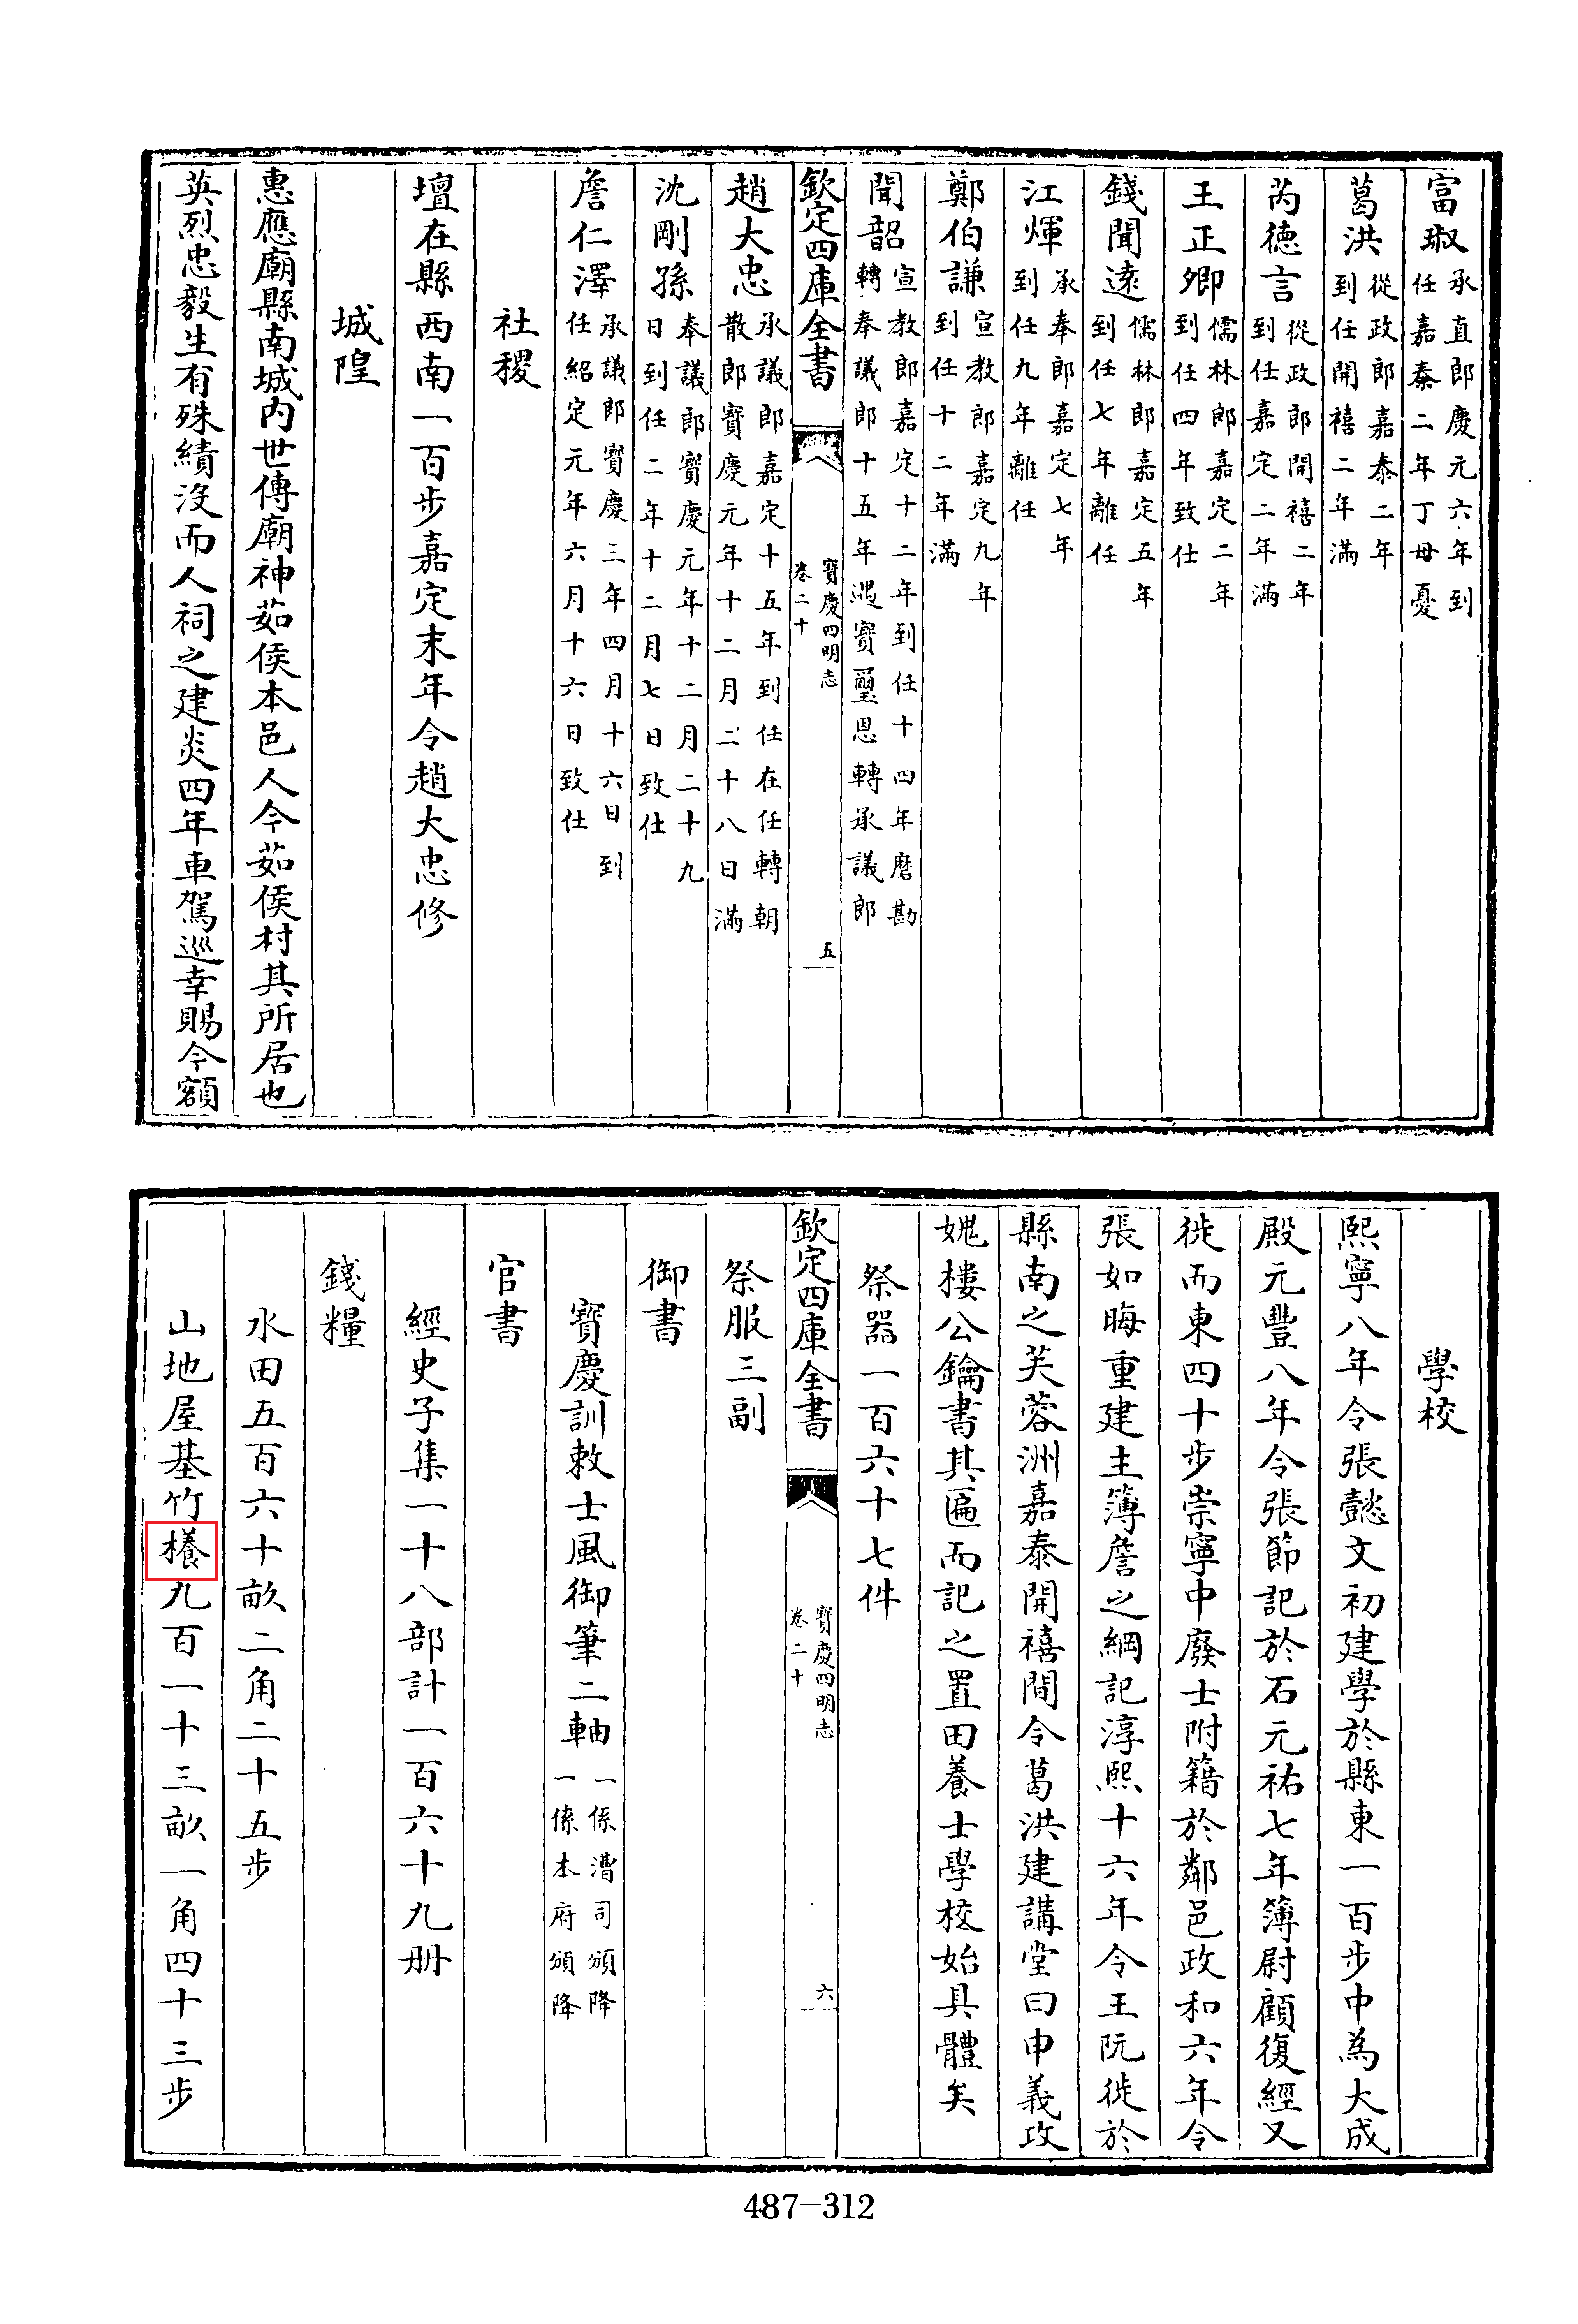 富琡承直郎慶元六年到
任嘉泰二年丁母憂
葛洪從政郎嘉泰二年
到任開禧二年滿
芮德言從政郎開禧二年
到任嘉定二年滿
王正卿儒林郎嘉定二年
到任四年致仕
錢聞遠儒林郎嘉定五年
到任七年離任
江煇承奉郎嘉定七年
到任九年離任
鄭伯謙宣教郎嘉定九年
到任十二年滿
聞韶宣教郎嘉定十二年到任十四年磨勘
轉奉議郎十五年遇寶璽恩轉承議郎
欽定四庫全書
寶慶四明志
卷二十
五
趙大忠承議郎嘉定十五年到任在任轉朝
散郎寶慶元年十二月二十八日滿
沈剛孫奉議郎寶慶元年十二月二十九
日到任二年十二月七日致仕
詹仁澤承議郎寶慶三年四月十六日到
任紹定元年六月十六日致仕
社稷
壇在縣西南一百步嘉定末年令趙大忠修
城隍
惠應廟縣南城内世傳廟神茹侯本邑人今茹侯村其所居也
英烈忠毅生有殊績沒而人祠之建炎四年車駕巡幸賜今額
學校
熙寧八年令張懿文初建學於縣東一百步中為大成
殿元豐八年令張節記於石元祐七年簿尉顧復經又
徙而東四十步崇寧中廢士附籍於鄰邑政和六年令
張如晦重建主簿詹之綱記淳熙十六年令王阮徙於
縣南之芙蓉洲嘉泰開禧間令葛洪建講堂曰申義攻
媿樓公鑰書其匾而記之置田養士學校始具體矣
祭器一百六十七件
欽定四庫全書
寶慶四明志
卷二十
六
祭服三副
御書
寶慶訓敕士風御筆二軸一係漕司頒降
一係本府頒降
官書
經史子集一十八部計一百六十九册
錢糧
水田五百六十畝二角二十五步
山地屋基竹橠九百一十三畝一角四十三步